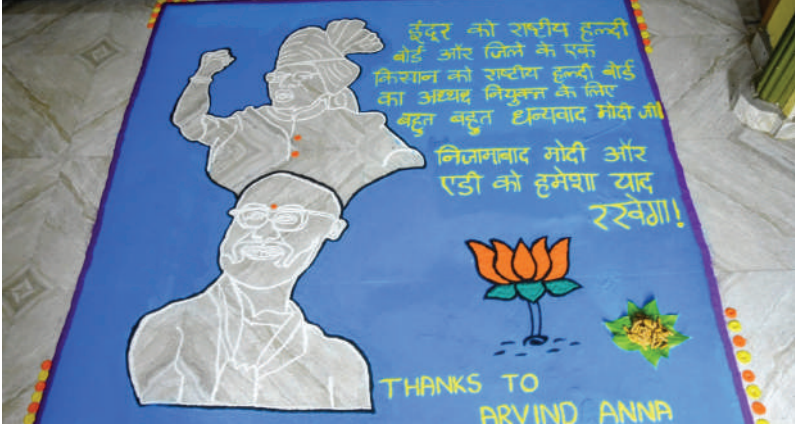 इंदूर को राष्टीय हल्दी
बोर्ड और जिले के एक
किसान को राष्टीय हल्दी बोर्ड
का अध्यक्ष नियुक्त के लिए
बहुत बहुत धन्यवाद मोदी जी!
निजामाबाद मोदी और
एडी को हमेशा याद
रखेगा!
THANKS TO
ARVIND ANNA